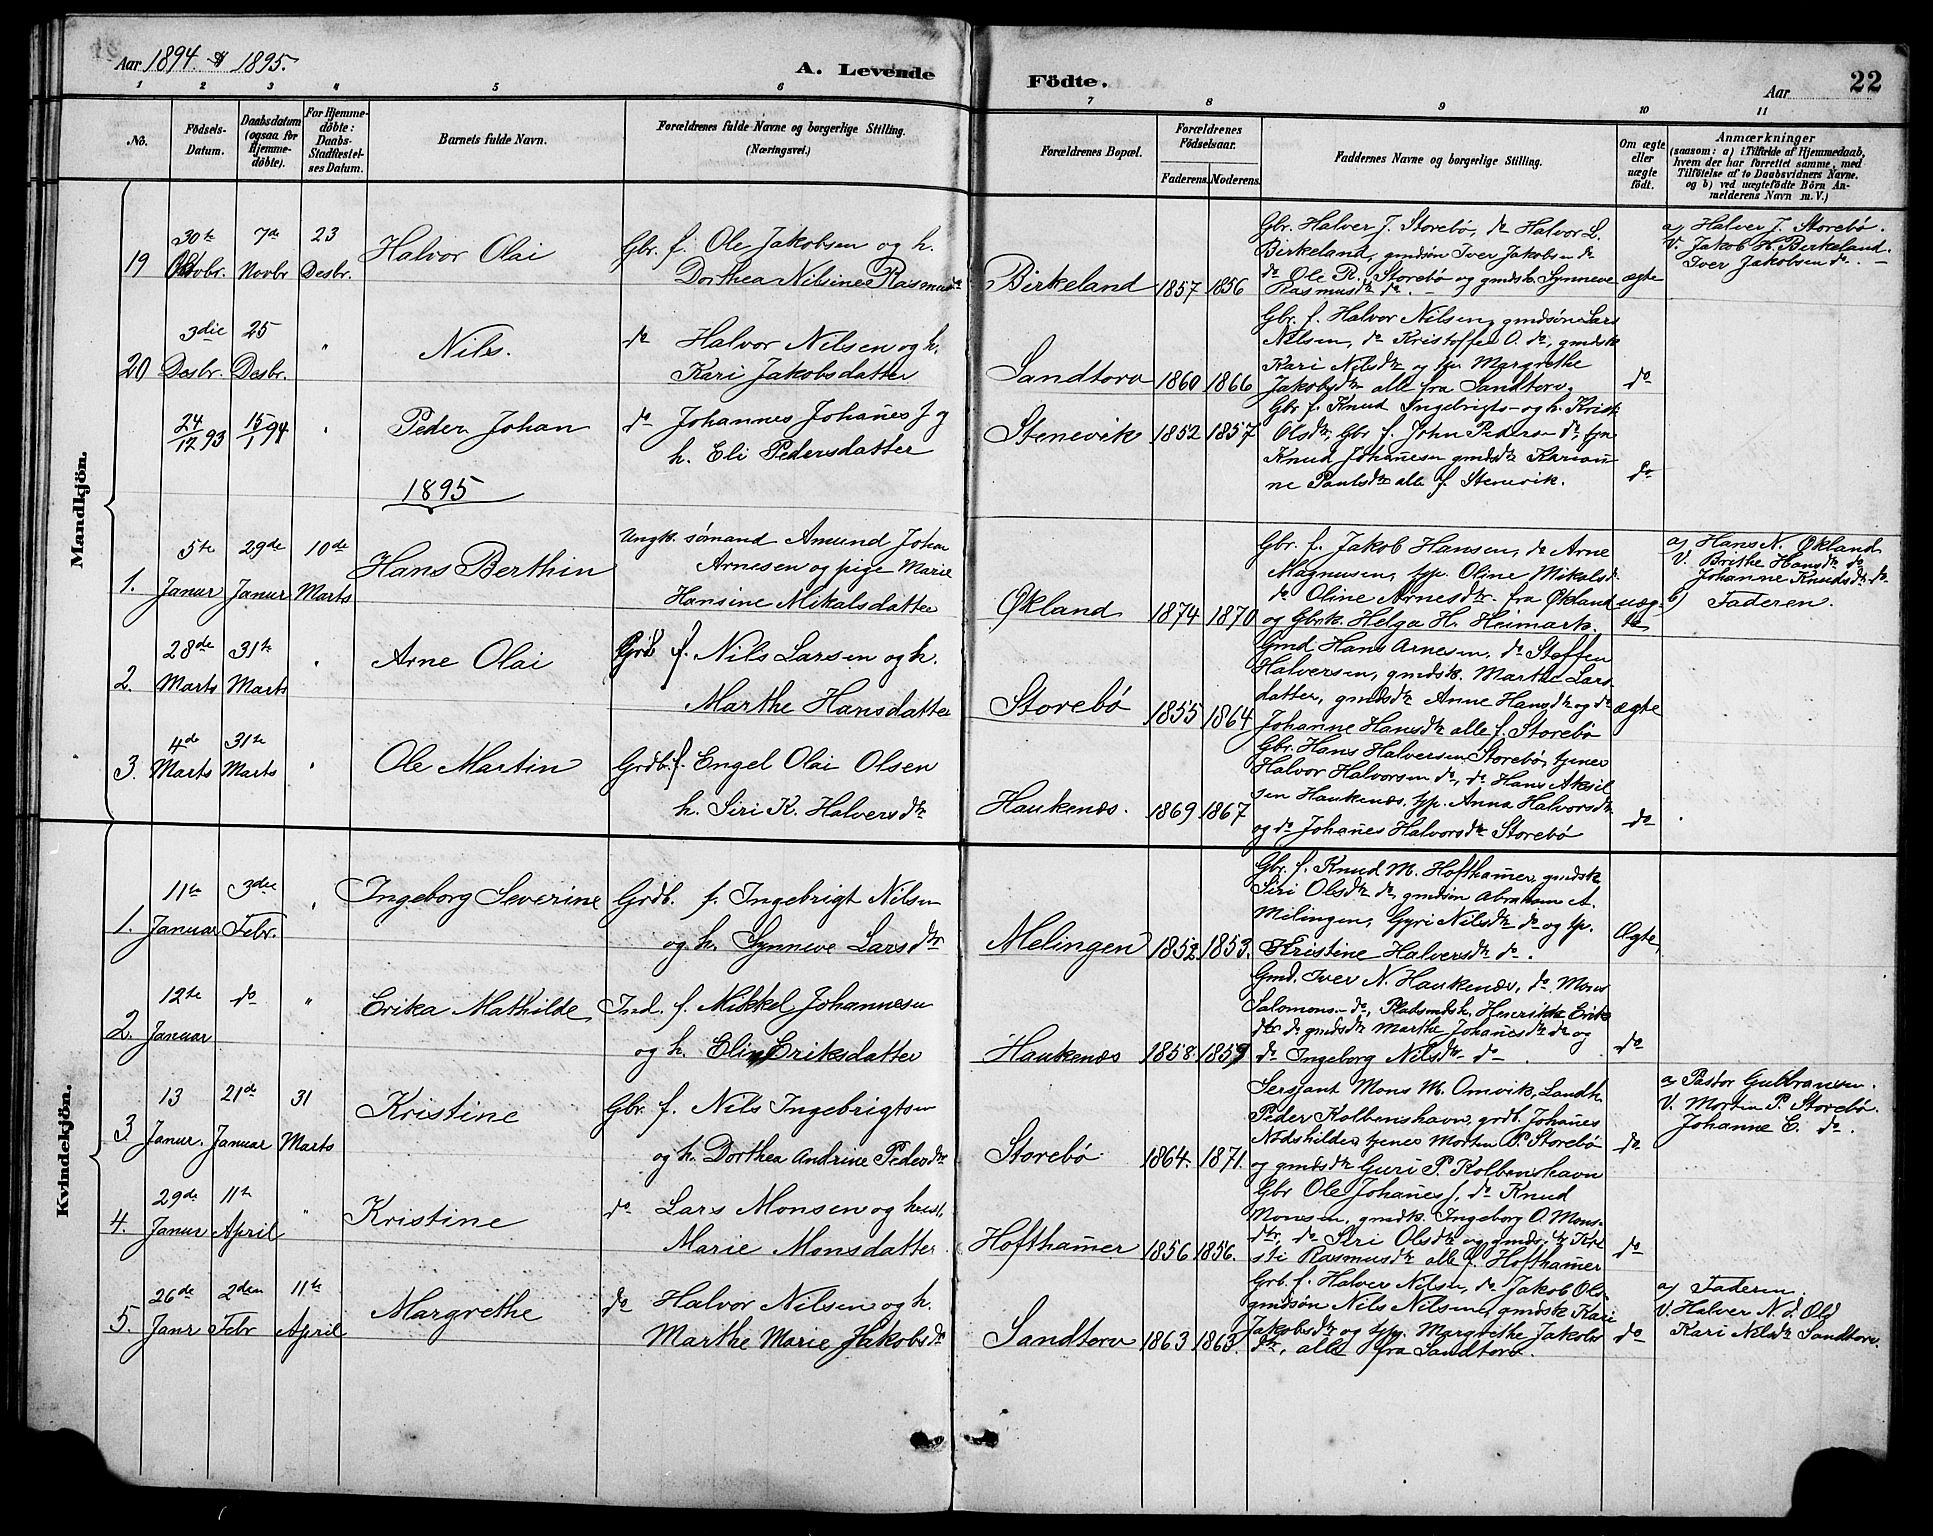 Aar 1894 & 1895.
A. Levende
Födte.
Aar
22
1 2 3 4 5 6 7 8 9 10 11
No.
Födsels-Datum.
Daabsdatum (ogsaa for Hjemme-döbte).
For Hjemme-döbte: Daabs-Stadfæstel-ses Datum.
Barnets fulde Navn.
Forældrenes fulde Navne og borgerlige Stilling. (Næringsvei.)
Forældrenes Bopæl.
Forældrenes Födselsaar.
Faderens. Moderens.
Faddernes Navne og borgerlige Stilling.
Om ægte eller uægte födt.
Anmærkninger
(saasom: a) i Tilfælde af Hjemmedaab,
hvem der har forrettet samme, med
Tilföielse af to Daabsvidners Navne.
og b) ved uægtefödte Börn An-
melderens Navn m. V.)
Mandkjön.
19
30te Oktbr.
7de Novbr
23 Desbr.
Halvor Olai
Gbr. f. Ole Jakobsen og h.
Dorthea Nilsine Rasmusdr
Birkeland
1857
1856
Gbr. Halver J. Storebø, do Halvor L.
Birkeland, gmdsøn Iver Jakobsen do
do Ole R. Storebø og gmdsk. Synneve
Rasmusdtr do. -
ægte
a) Halver J. Storebø.
V. Jakob H. Birkeland.
Iver Jakobsen do. -
20
3die Desbr.
25 Desbr.
"
Nils.
do Halvor Nilsen og h.
Kari Jakobsdatter
Sandtorv
1860
1866
Gbr. f. Halvor Nilsen, gmdsøn Lars
Nilsen, do Kristoffer O. do, gmdsk
Kari Nilsdtr og tp. Margrethe
Jakobsdtr alle fra Sandtorv.
do
24/12 93
15/1 94
"
Peder Johan
do Johannes Johanes f og
h. Eli Pedersdatter
Stenevik
1852
1857
Gbr f. Knud Ingebrigts- og h. Krist
Olsdtr, Gbr f. John Peders- do, tjn
Knud Johanesen gmdsdtr Karian
ne Paulsdtr alle f. Stenevik.
do
1895
1.
5te Januar
29de Januar
10de Marts
Hans Berthin
Ungk. sømand Amund Johan
Arnesen og pige Marie
Hansine Mikalsdatter
Økland
1874
1870
Gbr. f. Jakob Hansen, do Arne
Magnusen, tp. Oline Mikalsd-
do Oline Arnesdtr. fra Økland
og Gbrk. Helga H. Heimark.
uæg-te
a) Hans N. Økland
V. Brithe Hansdtr do
Johanne Knudsdtr do
b) Faderen.
2.
28de Marts
31te Marts
"
Arne Olai
Grdb f. Nils Larsen og h.
Marthe Hansdatter
Storebø
1855
1864
Gmd. Hans Arnesen, do Steffen
Halversen, gmdsk. Marthe Lars
datter, gmdsdtr Anne Hansdtr og do
Johanne Hansdtr alle f. Storebø
ægte
3.
4de Marts
31te Marts
"
Ole Martin
Grdb. f Engel Olai Olsen
h. Siri K. Halversdtr
Haukenæs.
1869
1867
Gbr. Hans Halversen Storebø, tjener
Halvor Halvorsen do, do Hans Aksil
sen Haukenæs, tp. Anna Halvorsdtr
og do Johanes Halvorsdtr Storebø
do
Kvindekjön.
1.
11te Januar
3die Febr.
"
Ingeborg Severine
Grdb. f. Ingebrigt Nilsen
og h. Synneve Larsdtr
Melingen
1852
1853.
Gbr. f. Knud M. Hofthamer, gmdsk
Siri Olsdtr do, gmdsøn Abraham A.
Milingen, Gyri Nilsdtr do og tp.
Kristine Halversdtr do.
Ægte
2.
12te Januar
do
"
Erika Mathilde
Ind. f. Mikkel Johannesen
og h. Elin Eriksdatter
Haukenæs
1858
1859
Gmd. Iver N. Haukenæs, do Mons
Salomons- do, Pladsmdsk. Henrikke Eriks
dtr do gmdsdtr Marthe Johanesdtr do og
do Ingeborg Nilsdtr- do
do
3.
13 Janur.
21de Januar
31 Marts
Kristine
Gbr. f. Nils Ingebrigtsen
og h. Dorthea Andrine Pedersdtr
Storebø
1864.
1871.
Sersjant Mons M. Omvik, Landh.
Peder Kolbenshavn, grdb. Johanes
Nødshilde, tjener Morten P. Storebø
og gmdsdtr Guri P. Kolbenshavn
do
a) Pastor Gulbransen.
V. Morten P. Storebø.
Johanne E. do.
4.
29de Janur
11te April
"
Kristine
do Lars Monsen og hust.
Marie Monsdatter
Hofthamer
1856
1856.
Gbr Ole Johanes f, do Knud
Monsen, gmdk. Ingeborg O. Mons-
dtr, do Siri Olsdtr og gmdsdtr Kri
sti Rasmusdtr alle f. Hofthamer
do
5.
26de Janr
2den Febr
11te April
Margrethe
do Halvor Nilsen og h.
Marthe Marie Jakobsdtr
Sandtorv
1863
1863.
Grb. f. Halver Nilsen, do Jakob Ols-
gmdsøn Nils Nilsen, gmdsk Kari
Jakobsdtr og tp. Margrethe Jakobs
dtr, alle fra Sandtorv.
do
a) Faderen.
V. Halver N. d. Old
Kari Nilsdtr Sandtorv.